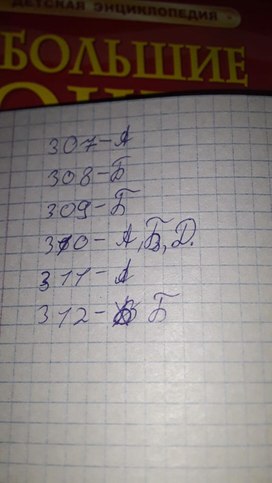 ДЕТСКАЯ ЭНЦИКЛОПЕДИЯ
БОЛЬШИЕ
307-А
308-Б
309-Б
310-А, Б, Д.
311-А
312- Б